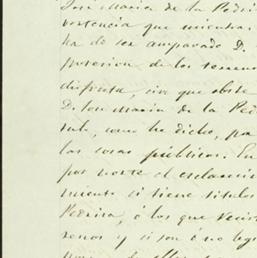 José Maria de la Pedri
vertencia que mientras
ha de ser amparado D.
posesion de los terrenos
disfruta, sin que obste
D. José Maria de la Ped
tal, como he dicho, pa
las cosas públicas. En
por norte el esclareci
miento si tiene titulos
Pedrisa, ó los que
renos y si son ó no leg